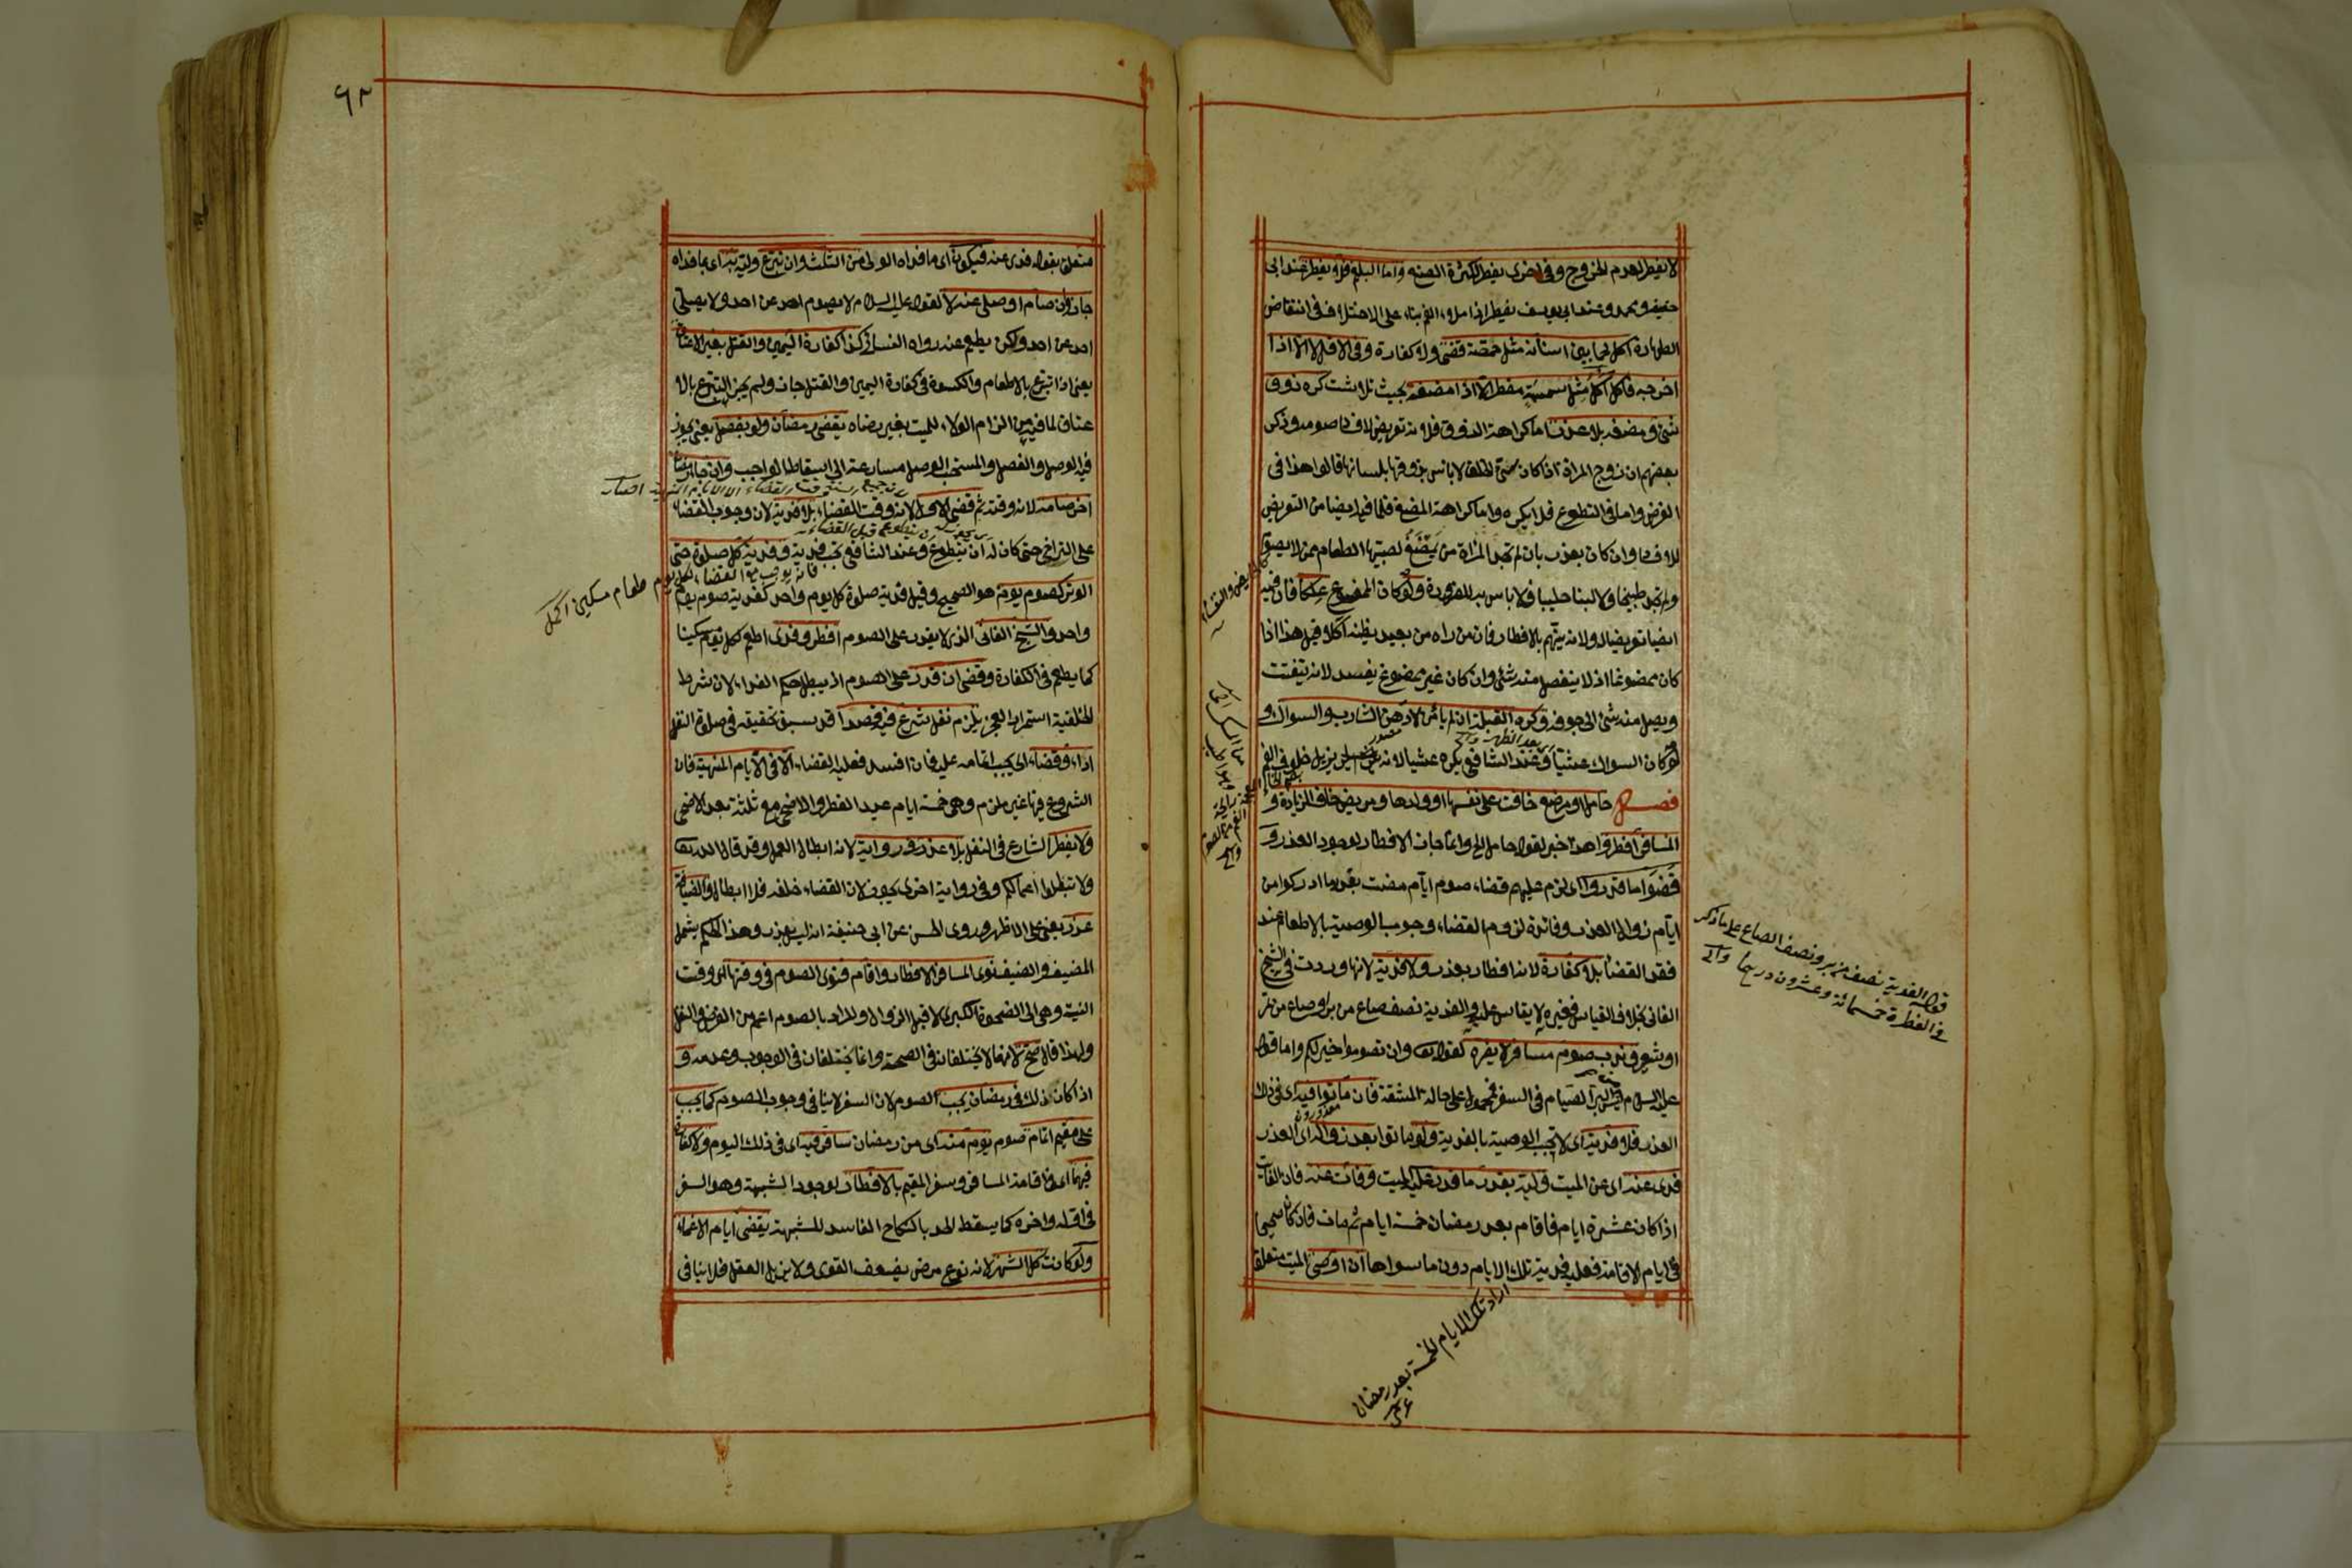 لا يفطر لعدم الخروج وفي اخرى يفطر لكثرة الصنع واما البلغم فلا يفطر عند ابى
حنيفة ومحمد وعند ابى يوسف يفطر اذا ملاء الفم بناء على الاختلاف في انتقاض
الطهارة اكل لحما بين اسنانه مثل حمصة قضى ولا كفارة وفي الاقل لا الا اذا
اخرجه فاكل اكل مثل سمسة مفطر الا اذا مضغه بحيث تلاشت كره ذوق
شئ ومضغه بلا عذر اما كراهة الذوق فلانه تعريض لافساد صومه وذكر
بعضهم ان زوج المراة اذا كان سئ الخلق لا باس بذوقها بلسانها قالوا هذا في
الفرض واما في التطوع فلا يكره واما كراهة المضغ فلما فيه ايضا من التعريض
للافساد وان كان بعذر بان لم تجد المراة من يمضغ لصبيها الطعام ممن لا يصوم
ولم تجد طبيخا ولا لبنا حليبا فلا باس به للضرورة ولو كان الممضوغ علكا فان فيه
ايضا تعريضا له ولانه يتهم بالافطار فان من راه من بعيد يظنه آكلا وقيل هذا اذا
كان ممضوغا اذ لا ينفصل منه شئ وان كان غير ممضوغ يفسد لانه يتفتت
ويصل منه شئ الى جوفه وكره القبلة ان لم يامن لا دهن الشارب والسواك و
لو كان السواك عشيا وعند الشافعي يكره عشيا لانه يزيل خلوف الفم
فصل حامل او مرضع خافت على نفسها او ولدها ومريض خاف الزيادة و
المسافر افطروا هذا خبر لقوله حامل الخ وانما جاز الافطار لوجود العذر و
قضوا ما قدروا اى لزم عليهم قضاء صوم ايام مضت بقدر ما ادركوا من
ايام زوال العذر وفائدة لزوم القضاء وجوب الوصية بالاطعام عند
فقد القضاء بلا كفارة لانه افطار بعذر ولا فدية لانها وردت في الشيخ
الفاني بخلاف القياس فغيره لا يقاس عليه والفدية نصف صاع من بر او صاع من تمر
او شعير وندب صوم مسافر لا يضره لقوله تعالى وان تصوموا خير لكم واما قوله
عليه السلام ليس من البر الصيام في السفر فمحمول على حالة المشقة فان ماتوا فيه اى في ذلك
العذر فلا فدية اى لا تجب الوصية بالفدية ولو ماتوا بعد زواله اى العذر
فدى عنه اى عن الميت وليه بقدر ما قدر عليه الميت وفات عنه فان الفائت
اذا كان عشرة ايام فاقام بعد رمضان خمسة ايام ثم مات فان كان صحيحا
في ايام الاقامة فعليه فدية تلك الايام دون ما سواها ان اوصى الميت متعلق
اراد تلك الايام الخمسة بعد رمضان
قوله الفدية نصف من بر ونصف الصاع على ما ذكر
في الفطرة خمسمائة وعشرون درهما
٦٢
متعلق بقوله فدى عنه فيكون اى ما فداه الولى من الثلث وان تبرع وليه به اى بما فداه
جاز وان صام او صلى عنه لا لقوله عليه السلام لا يصوم احد عن احد ولا يصلى
احد عن احد ولكن يطعم عنه رواه النسائي كذا كفارة اليمين والقتل بغير الاعتاق
يعنى اذا تبرع بالاطعام والكسوة في كفارة اليمين والقتل جاز ولم يجز التبرع بالا
عتاق لما فيه من الزام الولاء للميت بغير رضاه يقضى رمضان ولو بفصل يعنى يجوز
فيه الوصل والفصل والمستحب الوصل مسارعة الى اسقاط الواجب وان جاء رمضان
اخر صامه لانه وقته ثم قضى الاول لانه وقت القضاء بلا فدية لان وجوب القضاء
على التراخى حتى كان له ان يتطوع وعند الشافعي تجب فدية وفدية كل صلوة حتى
لكل يوم طعام مسكين
الوتر كصوم يوم هو الصحيح وقيل فدية صلوة كل يوم واحد كفدية صوم يوم
واحد والشيخ الفاني الذى لا يقدر على الصوم افطر وفدى اطعم لكل يوم مسكينا
كما يطعم في الكفارة وقضى ان قدر على الصوم اذ يبطل حكم الفداء لان شرط
الخلفية استمرار العجز يلزم نفل شرع فيه قصدا قد سبق تحقيقه في صلوة النفل
اداء وقضاء اى يجب اتمامه عليه فان افسد فعليه القضاء الا في الايام المنهية فان
الشروع فيها غير ملزم وهى خمسة ايام عيد الفطر والاضحى مع ثلثة بعد الاضحى
ولا يفطر الشارع في النفل بلا عذر في رواية لانه ابطال العمل وقد قال الله تعالى
ولا تبطلوا اعمالكم وفي رواية اخرى يجوز لان القضاء خلفه فلا ابطال والضيافة
عذر يعنى على الاظهر وروى الحسن عن ابى حنيفة انه ليس بعذر وهذا الحكم يشمل
المضيف والضيف نوى المسافر الافطار واقام فنوى الصوم في وقتها اى وقت
النية وهى الى الضحوة الكبرى لا قبل الزوال والمراد بالصوم اعم من الفرض والنفل
ولهذا قال صح لانهما لا يختلفان في الصحة وانما يختلفان في الوجوب وعدمه و
اذا كان ذلك في رمضان يجب الصوم لان السفر لا ينافى وجوب الصوم كما يجب
على مقيم اتمام صوم يوم منه اى من رمضان سافر فيه اى في ذلك اليوم ولا كفارة
فيهما اى في اقامة المسافر وسفر المقيم بالافطار لوجود الشبهة وهو السفر
في اوله واخره كما يسقط الحد بالنكاح الفاسد للشبهة يقضى ايام الاغماء
ولو كانت كل الشهر لانه نوع مرض يضعف القوى ولا يزيل العقل فلا ينافى